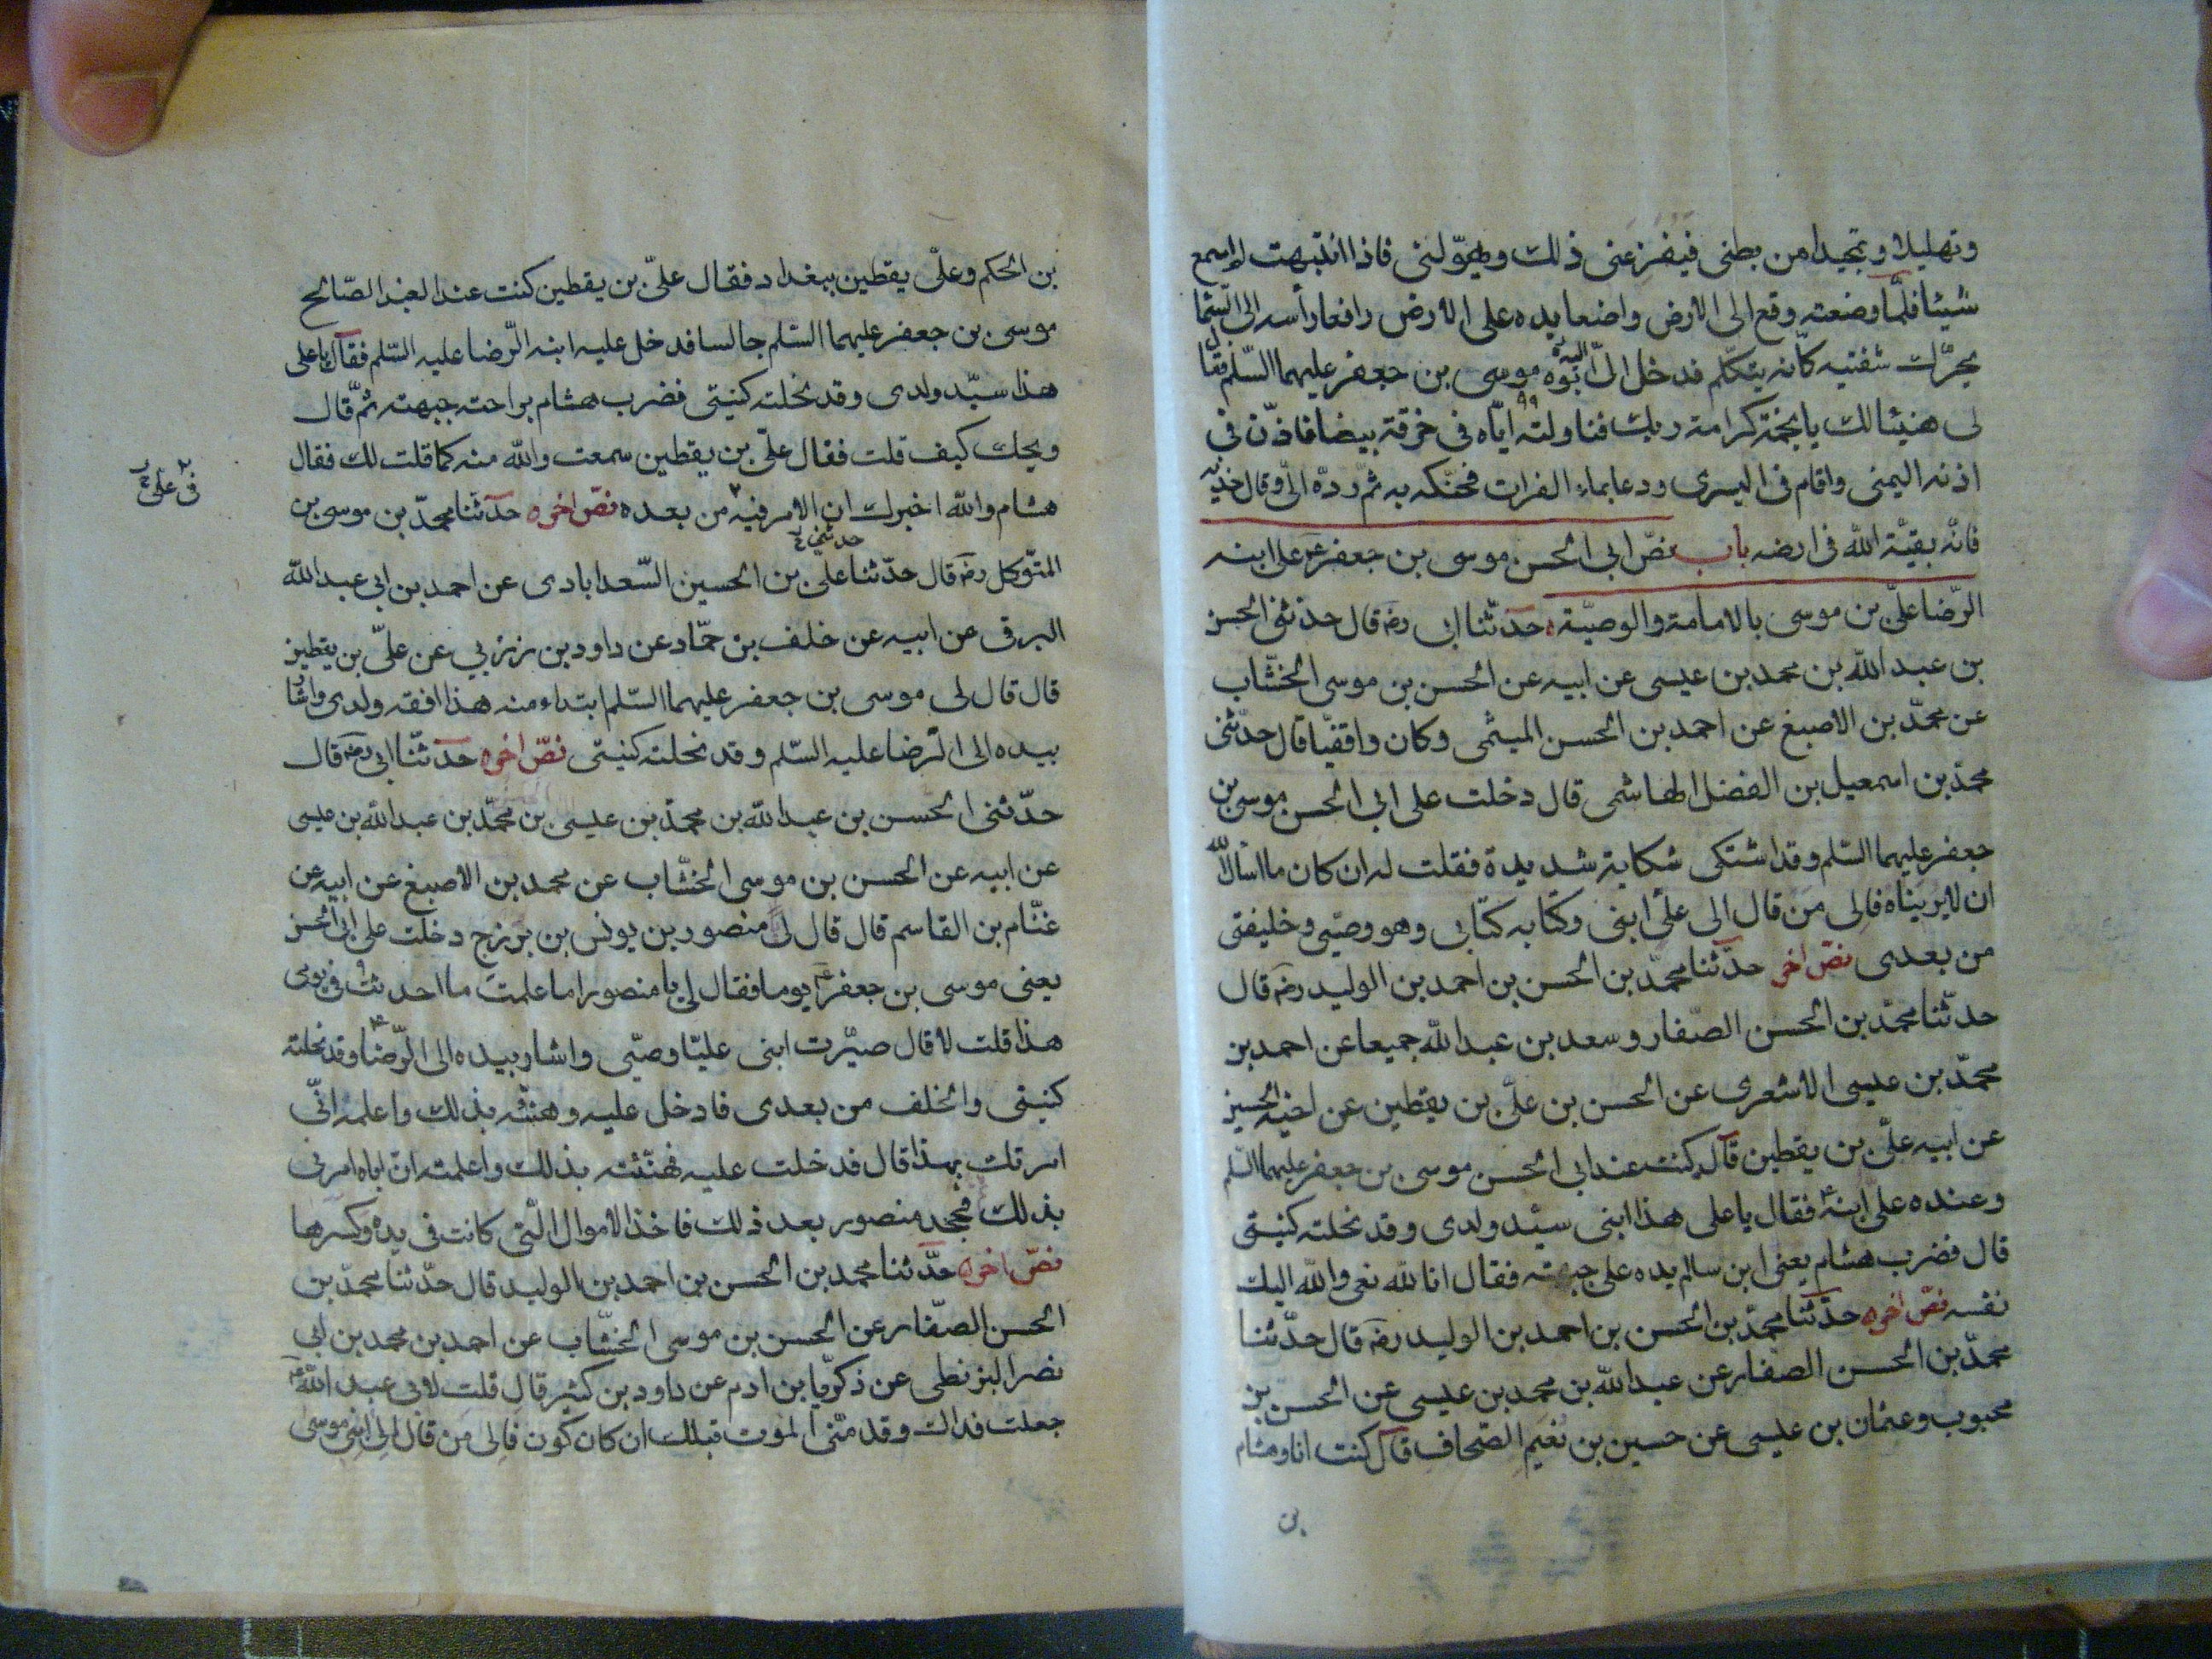 وتهليلا وتمجيدا من بطنى فيفزعنى ذلك ويهوّلنى فاذا انتبهت لم اسمع
شيئا فلمّا وضعته وقع الى الارض واضعا يده على الارض رافعا رأسه الى السّما
يحرّك شفتيه كانّه يتكلّم فدخل الىّ ابوه موسى بن جعفر عليهما السّلم فقال
لى هنيئا لك يا نجمة كرامة ربك فناولته ايّاه فى خرقة بيضا فاذّن فى
اذنه اليمنى واقام فى اليسرى ودعا بماء الفرات فحنّكه به ثمّ ردّه الىّ وقال خذيه
فانّه بقيّة الله فى ارضه باب نصّ ابى الحسن موسى بن جعفر ع على ابنه
الرّضا علىّ بن موسى بالامامة والوصيّة حدّثنا ابى رضه قال حدّثنى الحسن
بن عبد الله بن محمد بن عيسى عن ابيه عن الحسن بن موسى الخشّاب
عن محمّد بن الاصبغ عن احمد بن الحسن الميثمى وكان واقفيّا قال حدّثنى
محمّد بن اسمعيل بن الفضل الهاشمى قال دخلت على ابى الحسن موسى بن
جعفر عليهما السّلم وقد اشتكى شكاية شديدة فقلت له ان كان ما اسأل الله
ان لا يريناه فالى من قال الى علىّ ابنى وكتابه كتابى وهو وصيّى وخليفتى
من بعدى نصّ اخر حدّثنا محمّد بن الحسن بن احمد بن الوليد رضه قال
حدّثنا محمّد بن الحسن الصّفار وسعد بن عبد الله جميعا عن احمد بن
محمّد بن عيسى الاشعرى عن الحسن بن علىّ بن يقطين عن اخيه الحسين
عن ابيه علىّ بن يقطين قال كنت عند ابى الحسن موسى بن جعفر عليهما السّلم
وعنده علىّ ابنه ع فقال يا على هذا ابنى سيّد ولدى وقد نحلته كنيتى
قال فضرب هشام يعنى ابن سالم يده على جبهته فقال انا لله نعى والله اليك
نفسه نصّ اخر حدّثنا محمّد بن الحسن بن احمد بن الوليد رضه قال حدّثنا
محمّد بن الحسن الصفار عن عبد الله بن محمد بن عيسى عن الحسن بن
محبوب وعثمان بن عيسى عن حسين بن نعيم الصّحاف قال كنت انا وهشام
بن
بن الحكم وعلى يقطين ببغداد فقال علىّ بن يقطين كنت عند العبد الصّالح
موسى بن جعفر عليهما السّلم جالسا فدخل عليه ابنه الرّضا عليه السّلم فقال يا على
هذا سيّد ولدى وقد نحلته كنيتى فضرب هشام براحته جبهته ثمّ قال
ويحك كيف قلت فقال علىّ بن يقطين سمعت والله منه كما قلت لك فقال
هشام والله اخبرك ان الامر فيه من بعده نصّ اخر حدّثنا محمّد بن موسى بن
حدثنى
المتوكل رضه قال حدّثنا علىّ بن الحسين السّعدابادى عن احمد بن ابى عبد الله
البرقى عن ابيه عن خلف بن حمّاد عن داود بن زربى عن علىّ بن يقطين
قال قال لى موسى بن جعفر عليهما السّلم ابتداء منه هذا افقه ولدى واشار
بيده الى الرّضا عليه السّلم وقد نحلته كنيتى نصّ اخر حدّثنا ابى رضه قال
حدّثنى الحسن بن عبد الله بن محمّد بن عيسى بن محمّد بن عبد الله بن عيسى
عن ابيه عن الحسن بن موسى الخشّاب عن محمد بن الاصبغ عن ابيه عن
غنّام بن القاسم قال قال لى منصور بن يونس بن برزج دخلت على ابى الحسن
يعنى موسى بن جعفر ع يوما فقال لى يا منصور اما علمت ما احدثت فى يومى
هذا قلت لا قال صيّرت ابنى عليّا وصيّى واشار بيده الى الرّضا ع وقد نحلته
كنيتى والخلف من بعدى فادخل عليه وهنّئه بذلك واعلمه انّى
امرتك بهذا قال فدخلت عليه فهنّئته بذلك واعلمته انّ اباه امرنى
بذلك فجحد منصور بعد ذلك فاخذ الاموال الّتى كانت فى يده وكسرها
نصّ اخر حدّثنا محمد بن الحسن بن احمد بن الوليد قال حدّثنا محمّد بن
الحسن الصفّار عن الحسن بن موسى الخشّاب عن احمد بن محمد بن ابى
نصر البزنطى عن زكريّا بن ادم عن داود بن كثير قال قلت لابى عبد الله ع
جعلت فداك وقدمنى الموت قبلك ان كان كون فالى من قال الى ابنى موسى